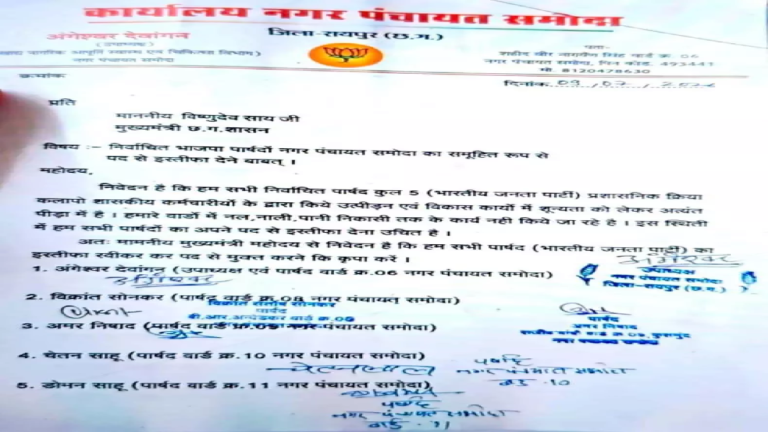 कार्यालय नगर पंचायत समोदा
अंगेश्वर देवांगन
(उपाध्यक्ष)
नगर पंचायत समोदा
जिला-रायपुर (छ.ग.)
पता-
शहीद वीर नारायण सिंह वार्ड क्र. 06
नगर पंचायत समोदा, पिन कोड. 493441
मो. 8120478630
क्रमांक:
दिनांक 09/07/2024
प्रति
माननीय विष्णुदेव साय जी
मुख्यमंत्री छ.ग.शासन
विषय :– निर्वाचित भाजपा पार्षदों नगर पंचायत समोदा का समूहित रूप से
पद से इस्तीफा देने बाबत् ।
महोदय,
निवेदन है कि हम सभी निर्वाचित पार्षद कुल 5 (भारतीय जनता पार्टी) प्रशासनिक क्रिया
कलापो शासकीय कर्मचारीयों के द्वारा किये उत्पीड़न एवं विकास कार्यो में शून्यता को लेकर अत्यंत
पीड़ा में है । हमारे वार्डो में नल,नाली,पानी निकासी तक के कार्य नही किये जा रहे है । इस स्थिती
में हम सभी पार्षदों का अपने पद से इस्तीफा देना उचित है ।
अतः माननीय मुख्यमंत्री महोदय से निवेदन है कि हम सभी पार्षद (भारतीय जनता पार्टी) का
इस्तीफा स्वीकार कर पद से मुक्त करने कि कृपा करें ।
1. अंगेश्वर देवांगन (उपाध्यक्ष एवं पार्षद वार्ड क्र.06 नगर पंचायत समोदा)
उपाध्यक्ष
नगर पंचायत समोदा
जिला-रायपुर (छ.ग.)
2. विक्रांत सोनकर (पार्षद वार्ड क्र.08 नगर पंचायत समोदा)
पार्षद
3. अमर निषाद (पार्षद वार्ड क्र.09 नगर पंचायत समोदा)
पार्षद
अमर निषाद
4. चेतन साहू (पार्षद वार्ड क्र.10 नगर पंचायत समोदा)
पार्षद
नगर पंचायत समोदा
वार्ड 10
5. डोमन साहू (पार्षद वार्ड क्र.11 नगर पंचायत समोदा)
पार्षद
नगर पंचायत समोदा
वार्ड 11